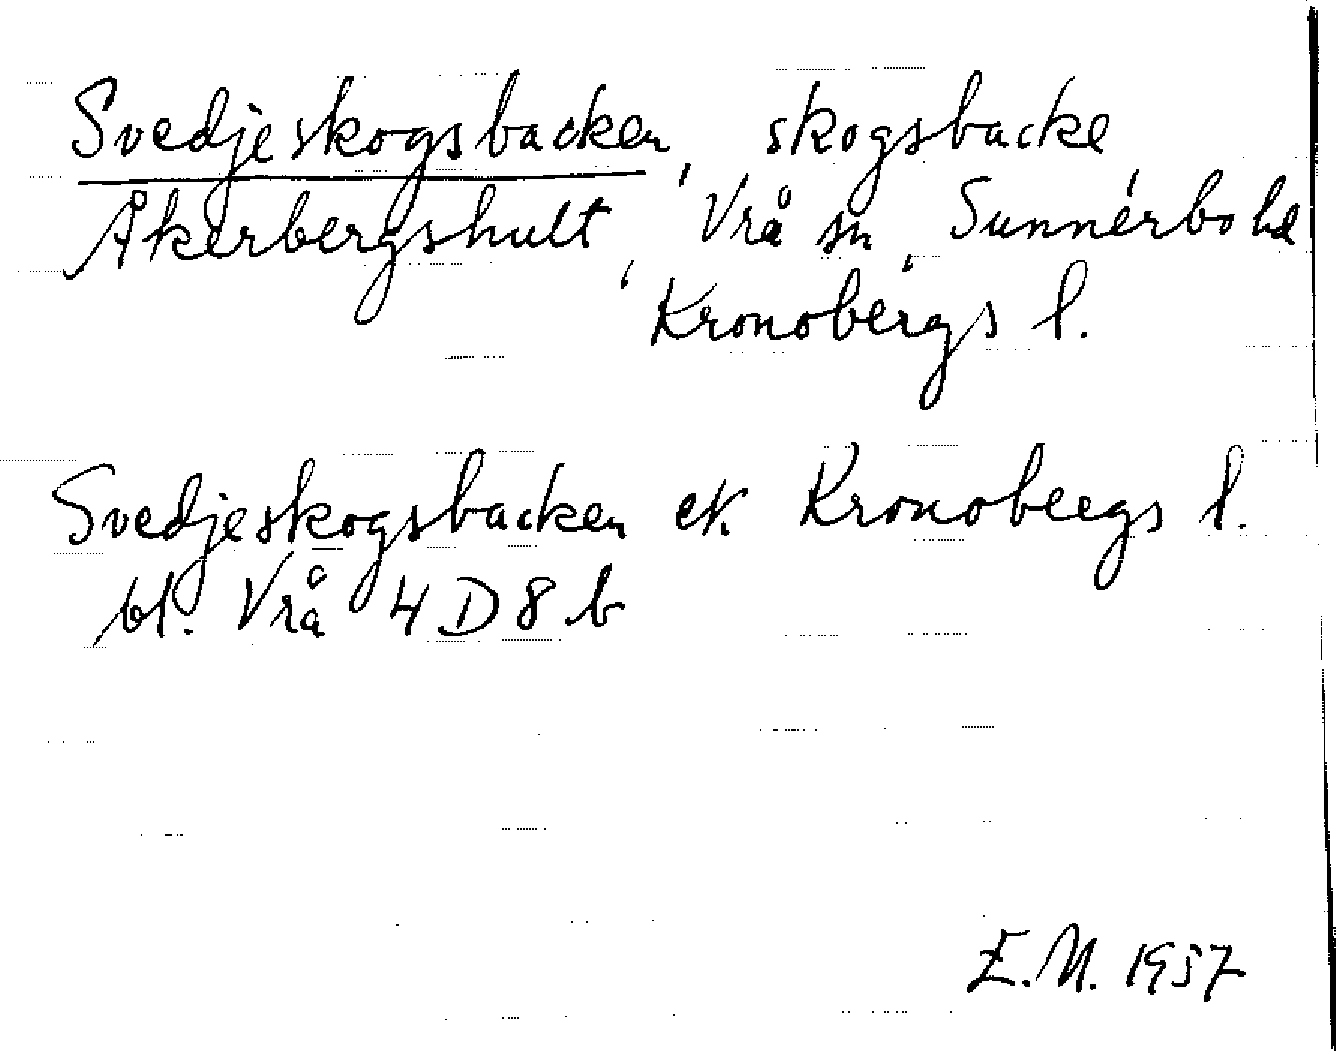 Svedjeskogsbacken, skogsbacke
Åkerbergshult, Vrå sn, Sunnerbo hd
Kronobergs l.
Svedjeskogsbacken ek. Kronobergs l.
bl. Vrå 4D8b
E.M. 1957